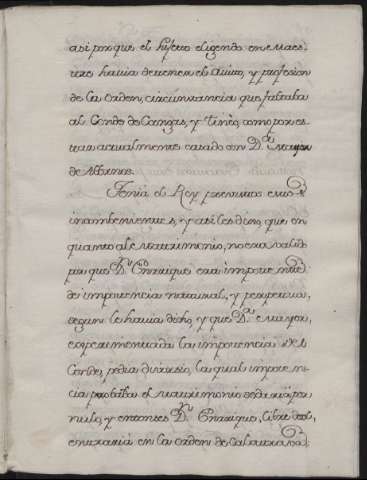 asi porque el sujeto eligendo en Maes-
tre havia de tener el avito, y profesion
de la Orden, circunstancia que faltaba
al Conde de Cangas, y tineo, como por es-
tar actualmente casado con D.ª Mayor
de Albornoz.
Tenia el Rey prevenidos estos
inconbenientes, y asi les dixo, que en
quanto al matrimonio, no era valido
porque D.n Enrrique era impotente
de impotencia natural, y perpetua,
segun le havia dicho, y que D.ª Mayor,
experimentada la impotencia del
Conde, pedia divorcio, la qual impoten-
cia probada el matrimonio se daria por
nulo, y entonses D.n Enrique, libre de el,
entraria en la orden de Calatrava: